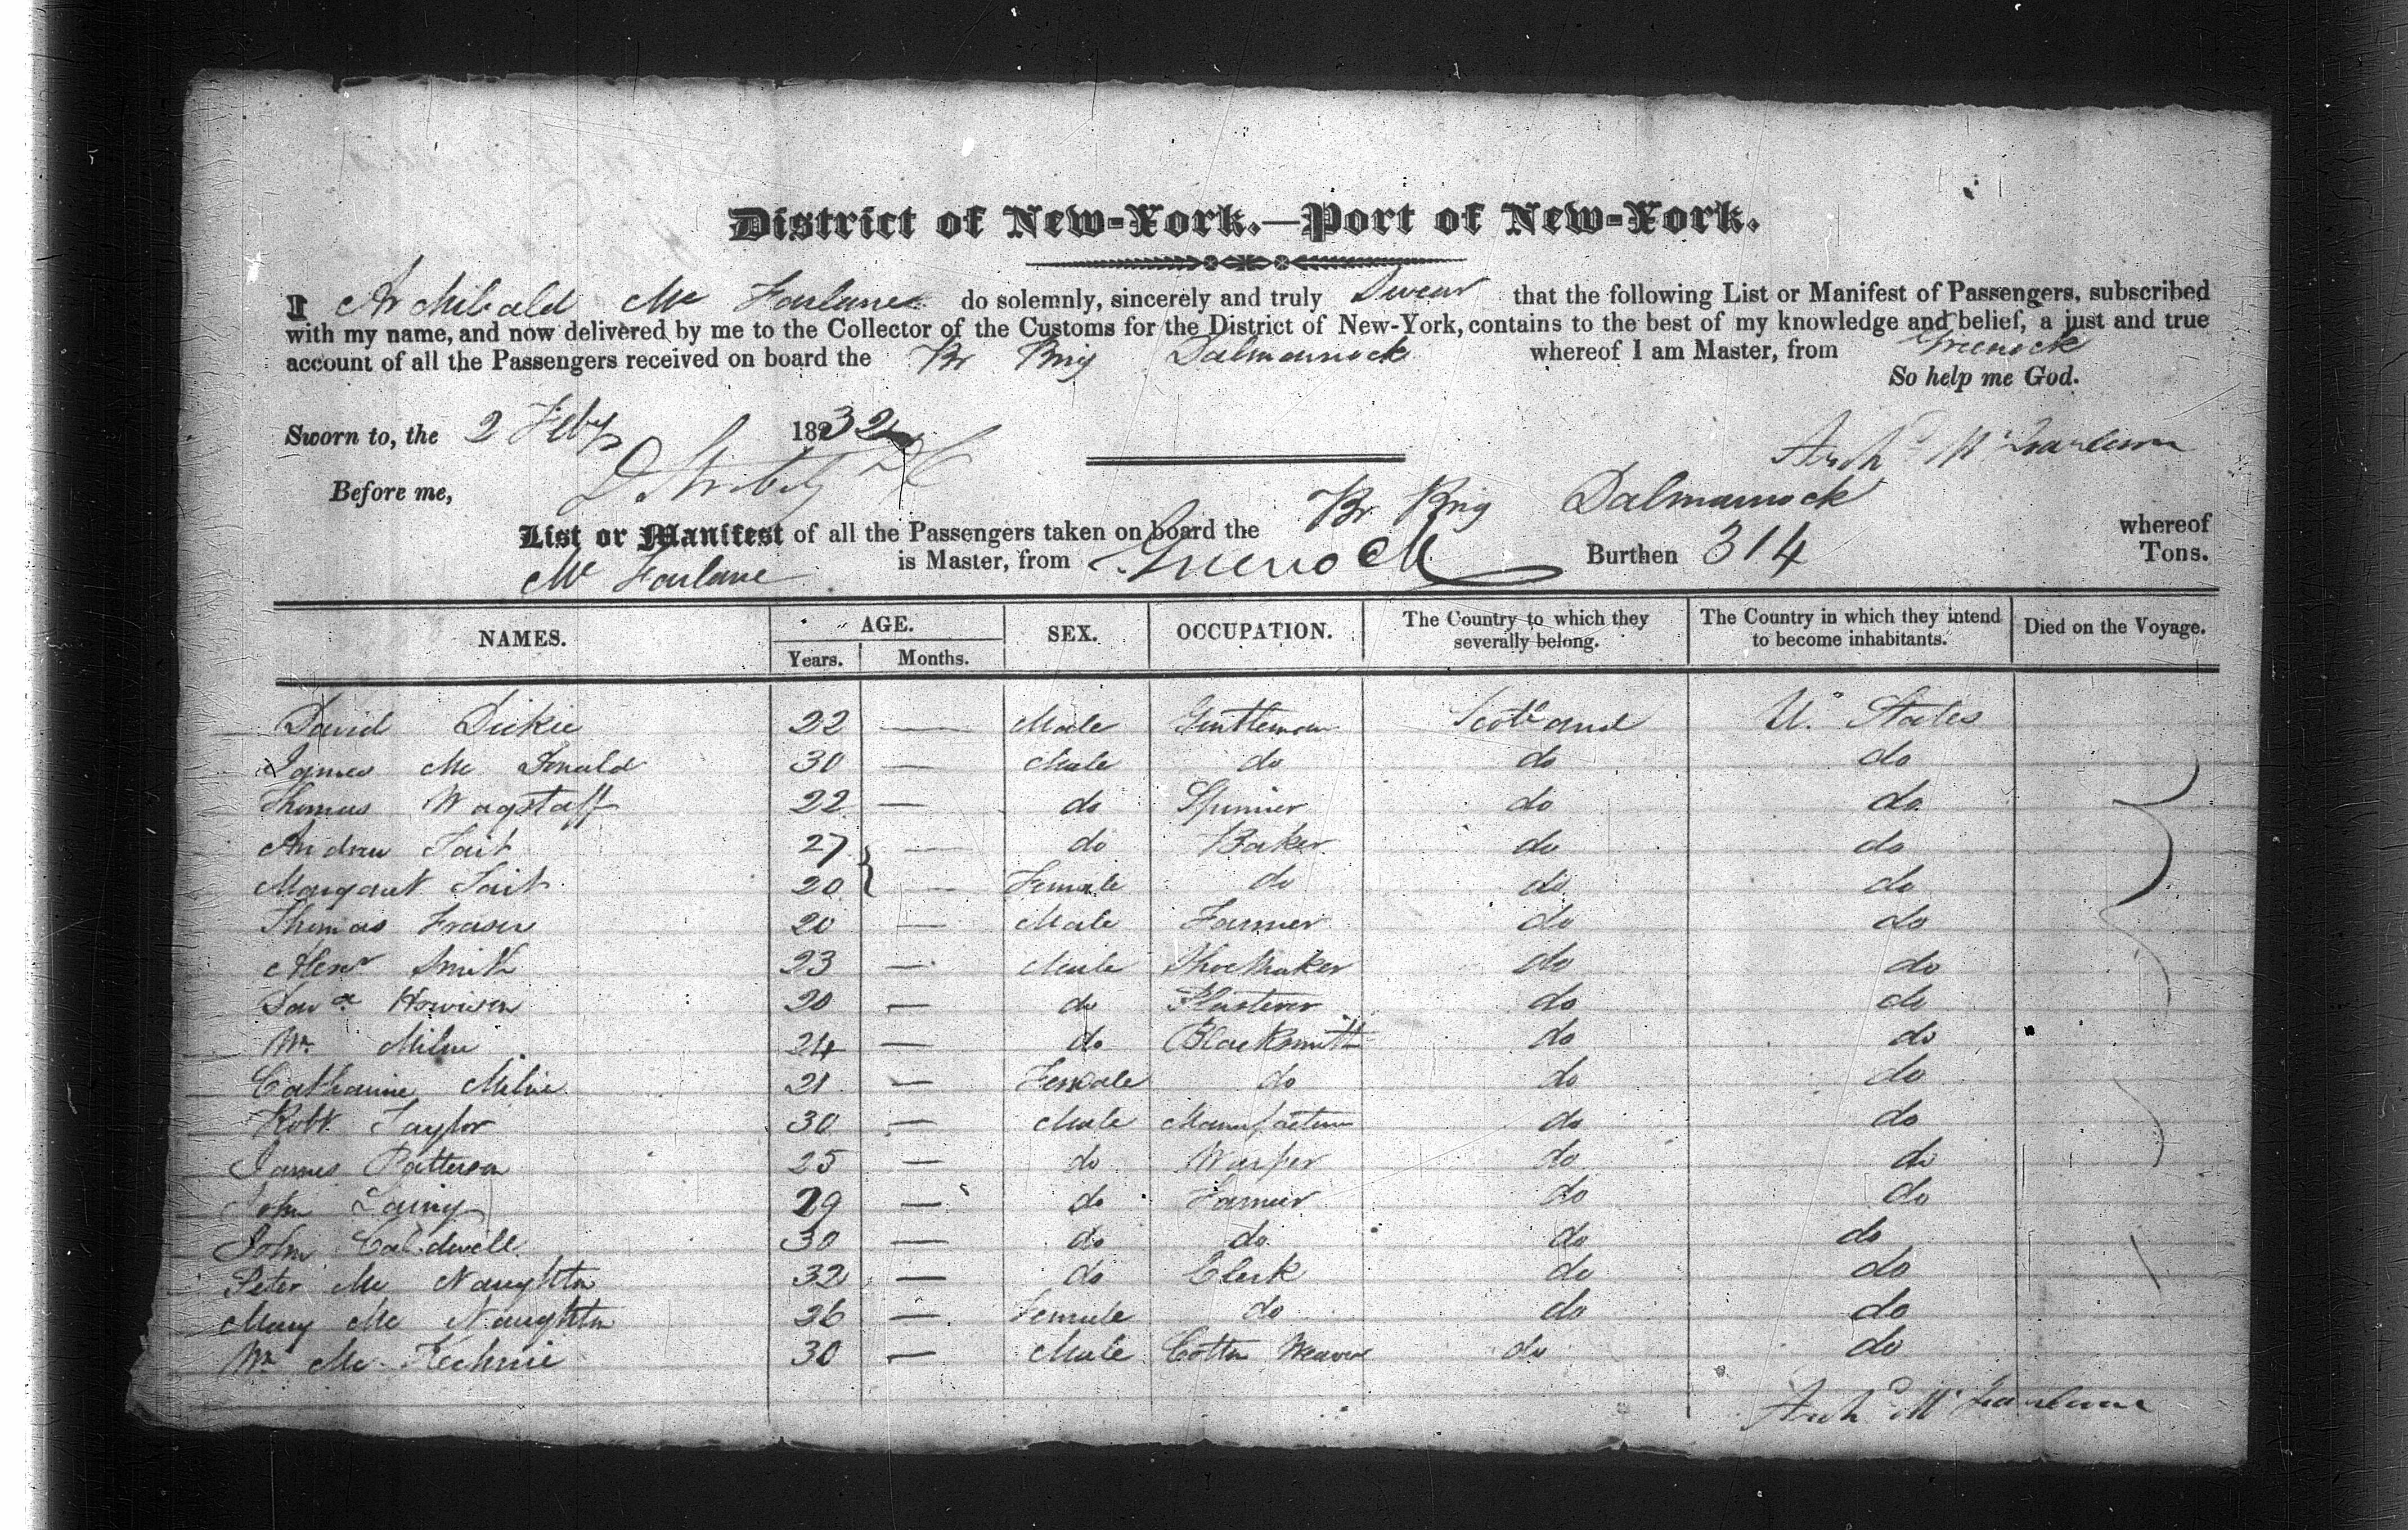 District of New-York.—Port of New-York.
I Archibald Mc Farlane do solemnly, sincerely and truly Swear that the following List or Manifest of Passengers, subscribed
with my name, and now delivered by me to the Collector of the Customs for the District of New-York, contains to the best of my knowledge and belief, a just and true
account of all the Passengers received on board the Br Brig Dalmarnock whereof I am Master, from Greenock
So help me God.
Sworn to, the 2 Feby 1832
Archd Mc Farlane
Before me,
List or Manifest of all the Passengers taken on board the Br. Brig Dalmarnock whereof
Mc Farlane is Master, from Greenock Burthen 314 Tons.
NAMES. AGE. SEX. OCCUPATION. The Country to which they severally belong. The Country in which they intend to become inhabitants. Died on the Voyage.
Years. Months.
David Dickie 22 — Male Gentleman Scotland U. States
James Mc Donald 30 — Male do do do
Thomas Wagstaff 22 — do Spinner do do
Andrew Tait 27 — do Baker do do
Margaret Tait 20 — Female do do do
Thomas Fraser 20 — Male Farmer do do
Alexr Smith 23 — Male Shoe Maker do do
Davd Howison 20 — do Plasterer do do
Wm Milne 24 — do Blacksmith do do
Catharine Milne 21 — Female do do do
Robt Taylor 30 — Male Manufacturer do do
James Patterson 25 — do Warper do do
John Laing 29 — do Farmer do do
John Caldwell 30 — do do do do
Peter Mc Naughton 32 — do Clerk do do
Mary Mc Naughton 26 — Female do do do
Wm Mc Kechnie 30 — Male Cotton Weaver do do
Archd Mc Farlane